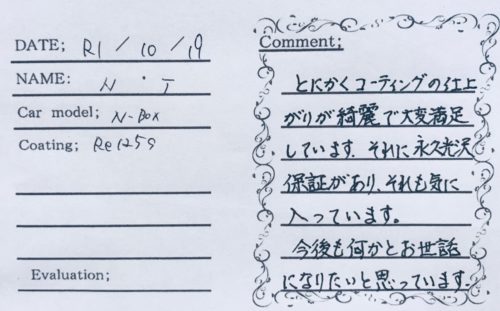 DATE; R1/10/19
NAME: N・T
Car model; N-Box
Coating; Re1259
Evaluation;
Comment;
とにかくコーティングの仕上
がりが綺麗で大変満足
しています。それに永久光沢
保証があり、それも気に
入っています。
今後も何かとお世話
になりたいと思っています。